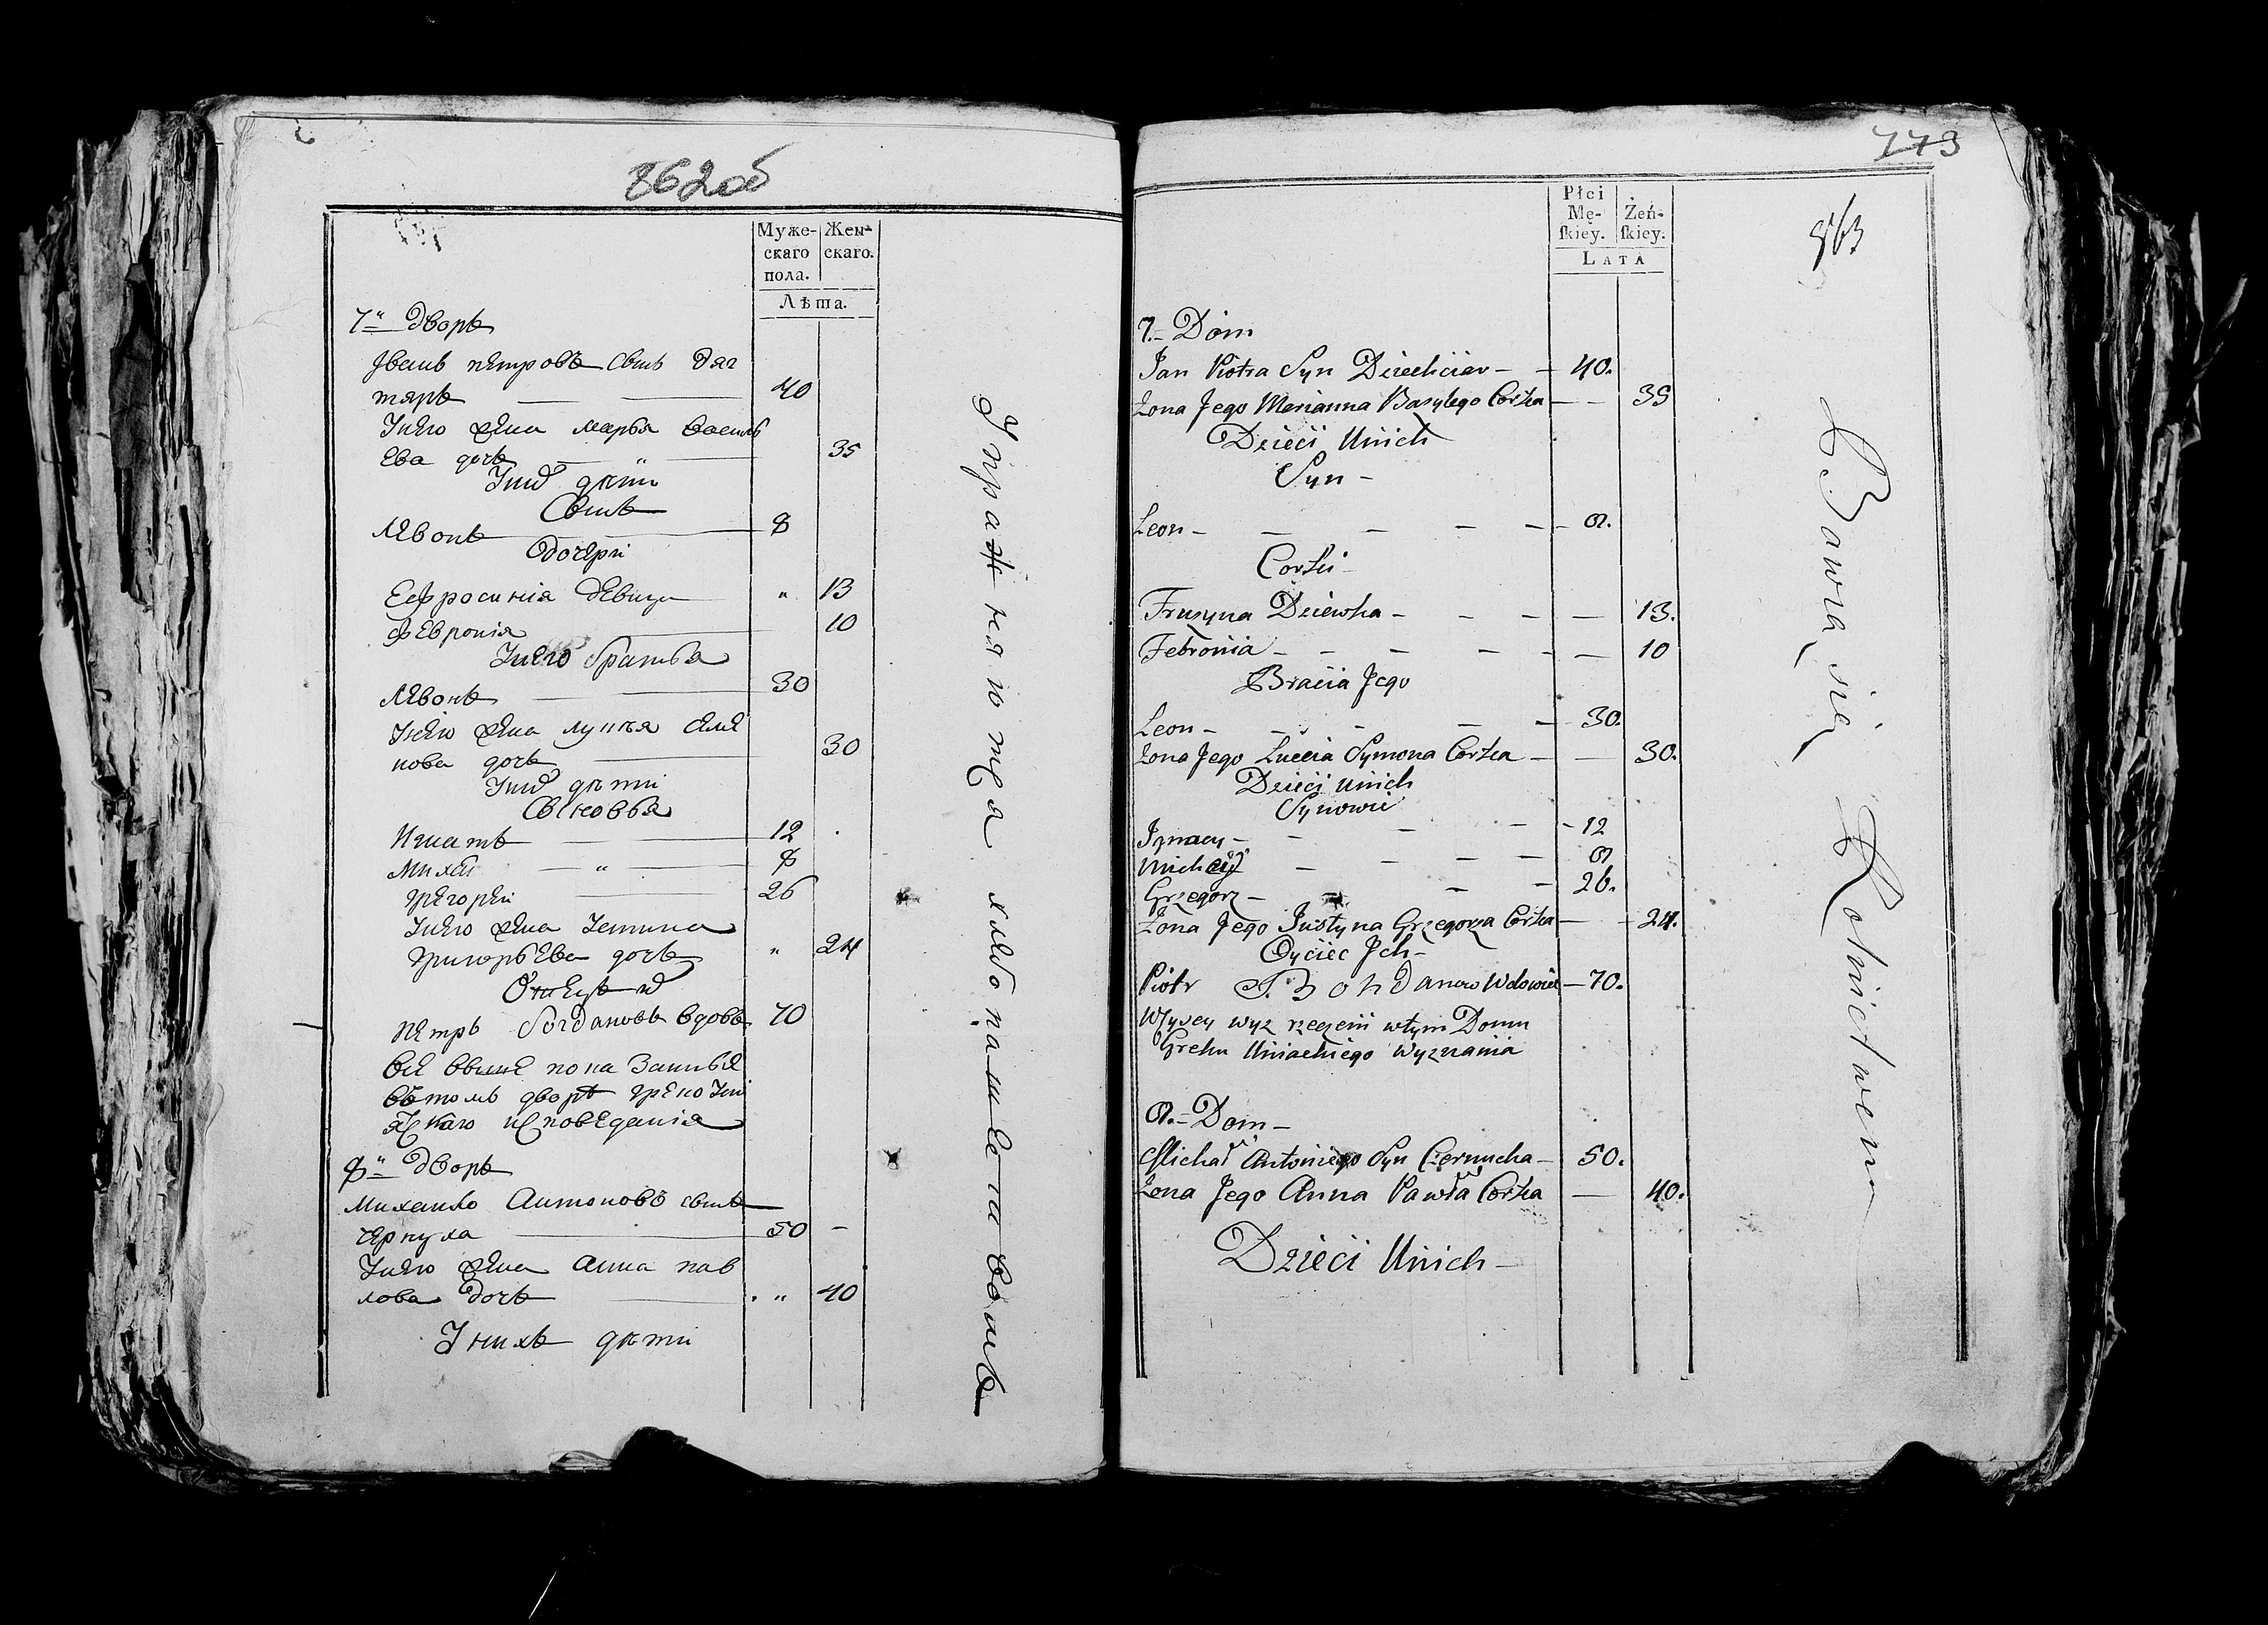 862об
Муже-
скаго
пола.
Жен-
скаго.
Лѣта.
7й дворъ
Иванъ петровъ сынъ дяг
тяръ 40
Унего жена марья василь
ева дочь " 35
Уних дѣти
Сынъ
левонъ 8
дочери
Ефросинія девица " 13
февронія 10
Унего братья
левонъ 30
Унего жена луцея семе
нова дочь 30
Уних дѣти
Сыновья
игнатъ 12
михей " 8
григорей 26
Унего жена Устина
григорьева дочь " 24
Отецъ их
петръ богдановъ вдовъ 70
Все выше показанные
вэтомъ дворѣ греко Уни
яцкаго исповеданія
8й дворъ
михайло антоновъ сынъ
чернуха 50 -
Унего жена анна пав
лова дочь " 40
Унихъ дѣти
Упражняютца хлебопашествомъ
773
863
Płci
Mę-
skiey.
Żeń-
skiey.
LATA
7.= Dom
Jan Piotra Syn Dziechciar - 40.
Zona Jego Marianna Basylego Corka - 35
Dzieci Unich
Syn -
Leon - 8.
Corki -
Fruzyna Dziewka - 13.
Febronia - 10
Bracia Jego
Leon - 30.
Zona Jego Luccia Symona Corka - 30.
Dzieci Unich
Synowie
Ignacy - 12
Michey - 8
Grzegorz - 26.
Zona Jego Justyna Grzegorza Corka - 24.
Oyciec Jch -
Piotr S. Bohdanow Wdowiec - 70.
Wszyscy wyz rzeczeni wtym Domu
Greku Uniackiego Wyznania
8.= Dom -
Michał Antoniego Syn Czernucha - 50.
Zona Jego Anna Pawła Corka - 40.
Dzieci Unich -
Bawią się Rolnictwem